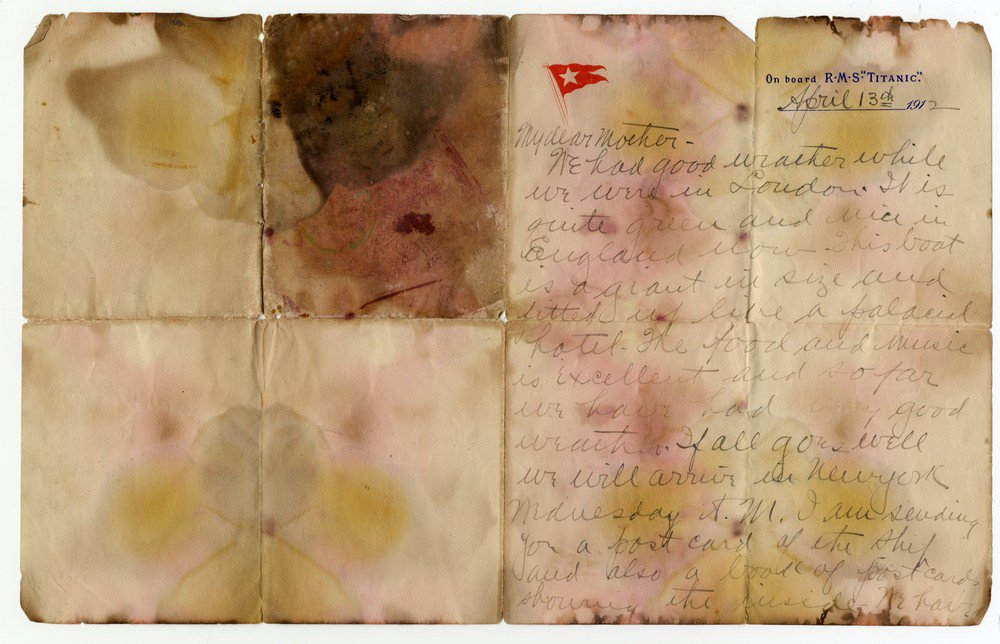 On board R·M·S "TITANIC".
April 13th 1912
My dear Mother-
We had good weather while
we were in London. It is
quite green and nice in
England now. This boat
is a giant in size and
fitted up like a palacial
hotel. The food and music
is excellent and so far
we have had very good
weather. If all goes well
we will arrive in New york
Wednesday A. M. I am sending
you a post card of the ship
and also a book of post cards
showing the inside. We have